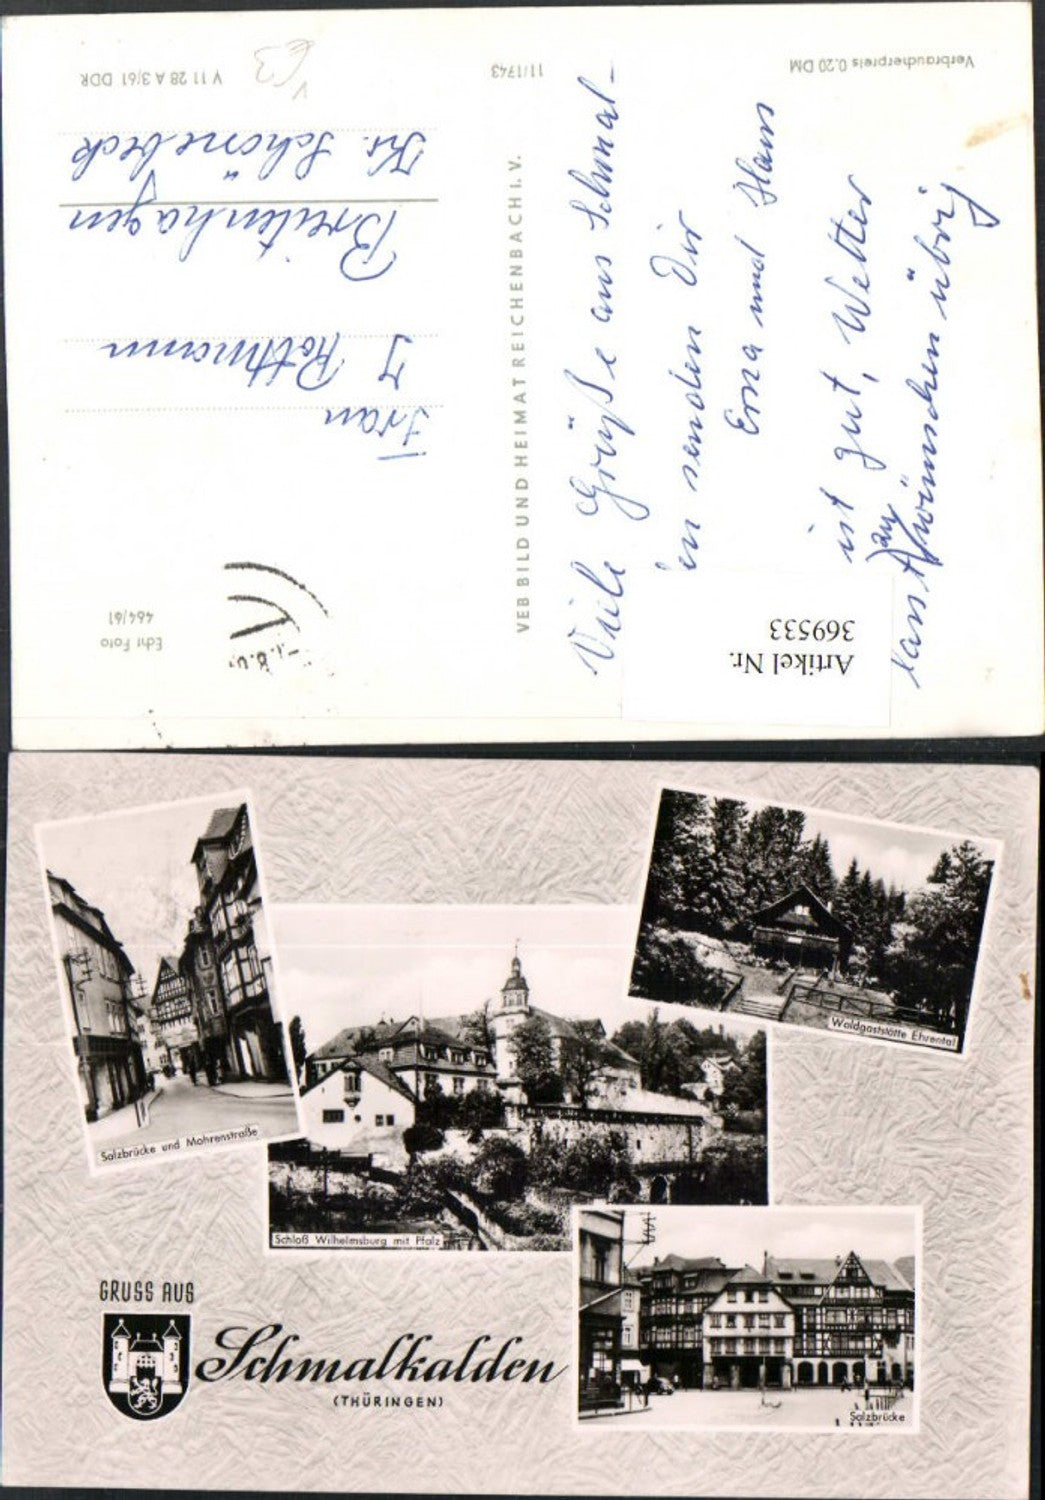 Verbraucherpreis 0.20 DM
11/1743
V 11 28 A 3/61 DDR
VEB BILD UND HEIMAT REICHENBACH I. V.
Echt Foto
464/61
Viele Grüße aus Schmal-
en senden Dir
Erna und Hans
ist gut, Wetter
wünschen übrig
Frau
Rottmann
Breitenhagen
Kr. Schönebeck
Artikel Nr.
369533
Salzbrücke und Mohrenstraße
Waldgaststätte Ehrental
Schloß Wilhelmsburg mit Pfalz
Salzbrücke
GRUSS AUS
Schmalkalden
(THÜRINGEN)